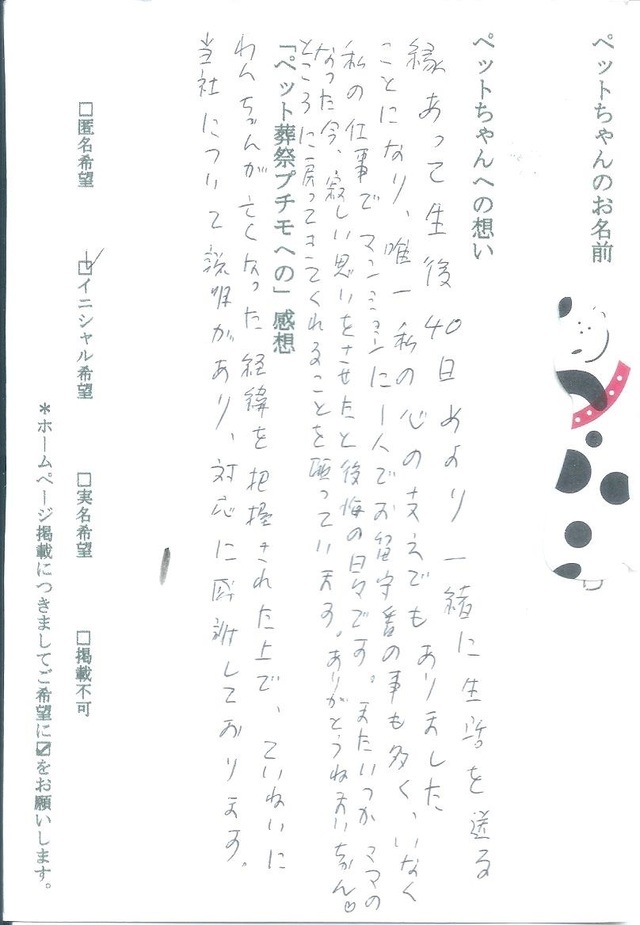 ペットちゃんのお名前
ペットちゃんへの想い
縁あって生後40日めより一緒に生活を送る
ことになり、唯一私の心の支えでもありました
私の仕事でマンションに1人でお留守番の事も多く、いなく
なった今、寂しい思いをさせたと後悔の日々です。またいつかママの
ところに戻ってきてくれることを願っています。ありがとうね
「ペット葬祭プチモへの」感想
わんちゃんが亡くなった経緯を把握された上で、ていねいに
当社について説明があり、対応に感謝しております。
□匿名希望
□イニシャル希望
□実名希望
□掲載不可
＊ホームページ掲載につきましてご希望に☑をお願いします。